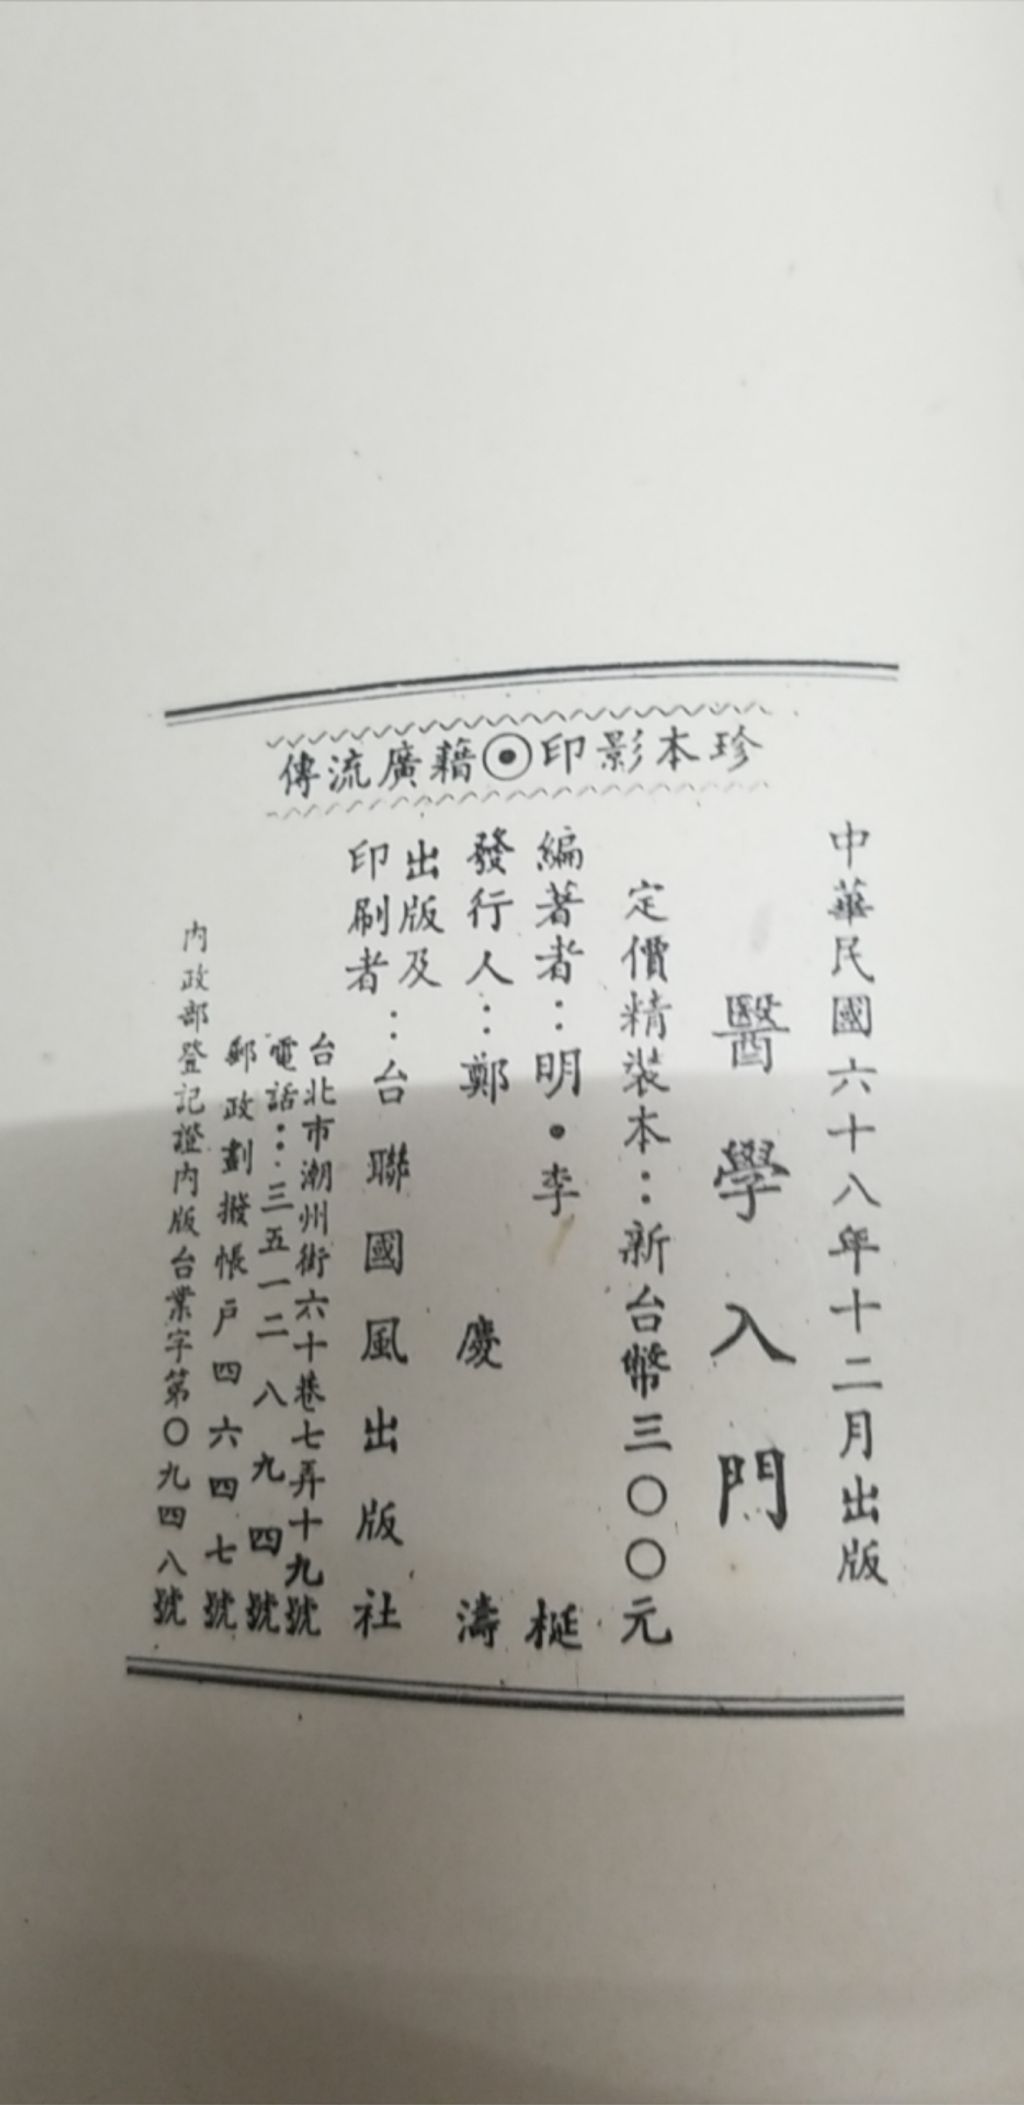 珍本影印⊙藉廣流傳
中華民國六十八年十二月出版
醫學入門
定價精裝本：新台幣三〇〇元
編著者：明•李梴
發行人：鄭慶濤
出版及印刷者：台聯國風出版社
台北市潮州街六十巷七弄十九號
電話：三五一二八九四號
郵政劃撥帳戶四六四七號
內政部登記證內版台業字第〇九四八號